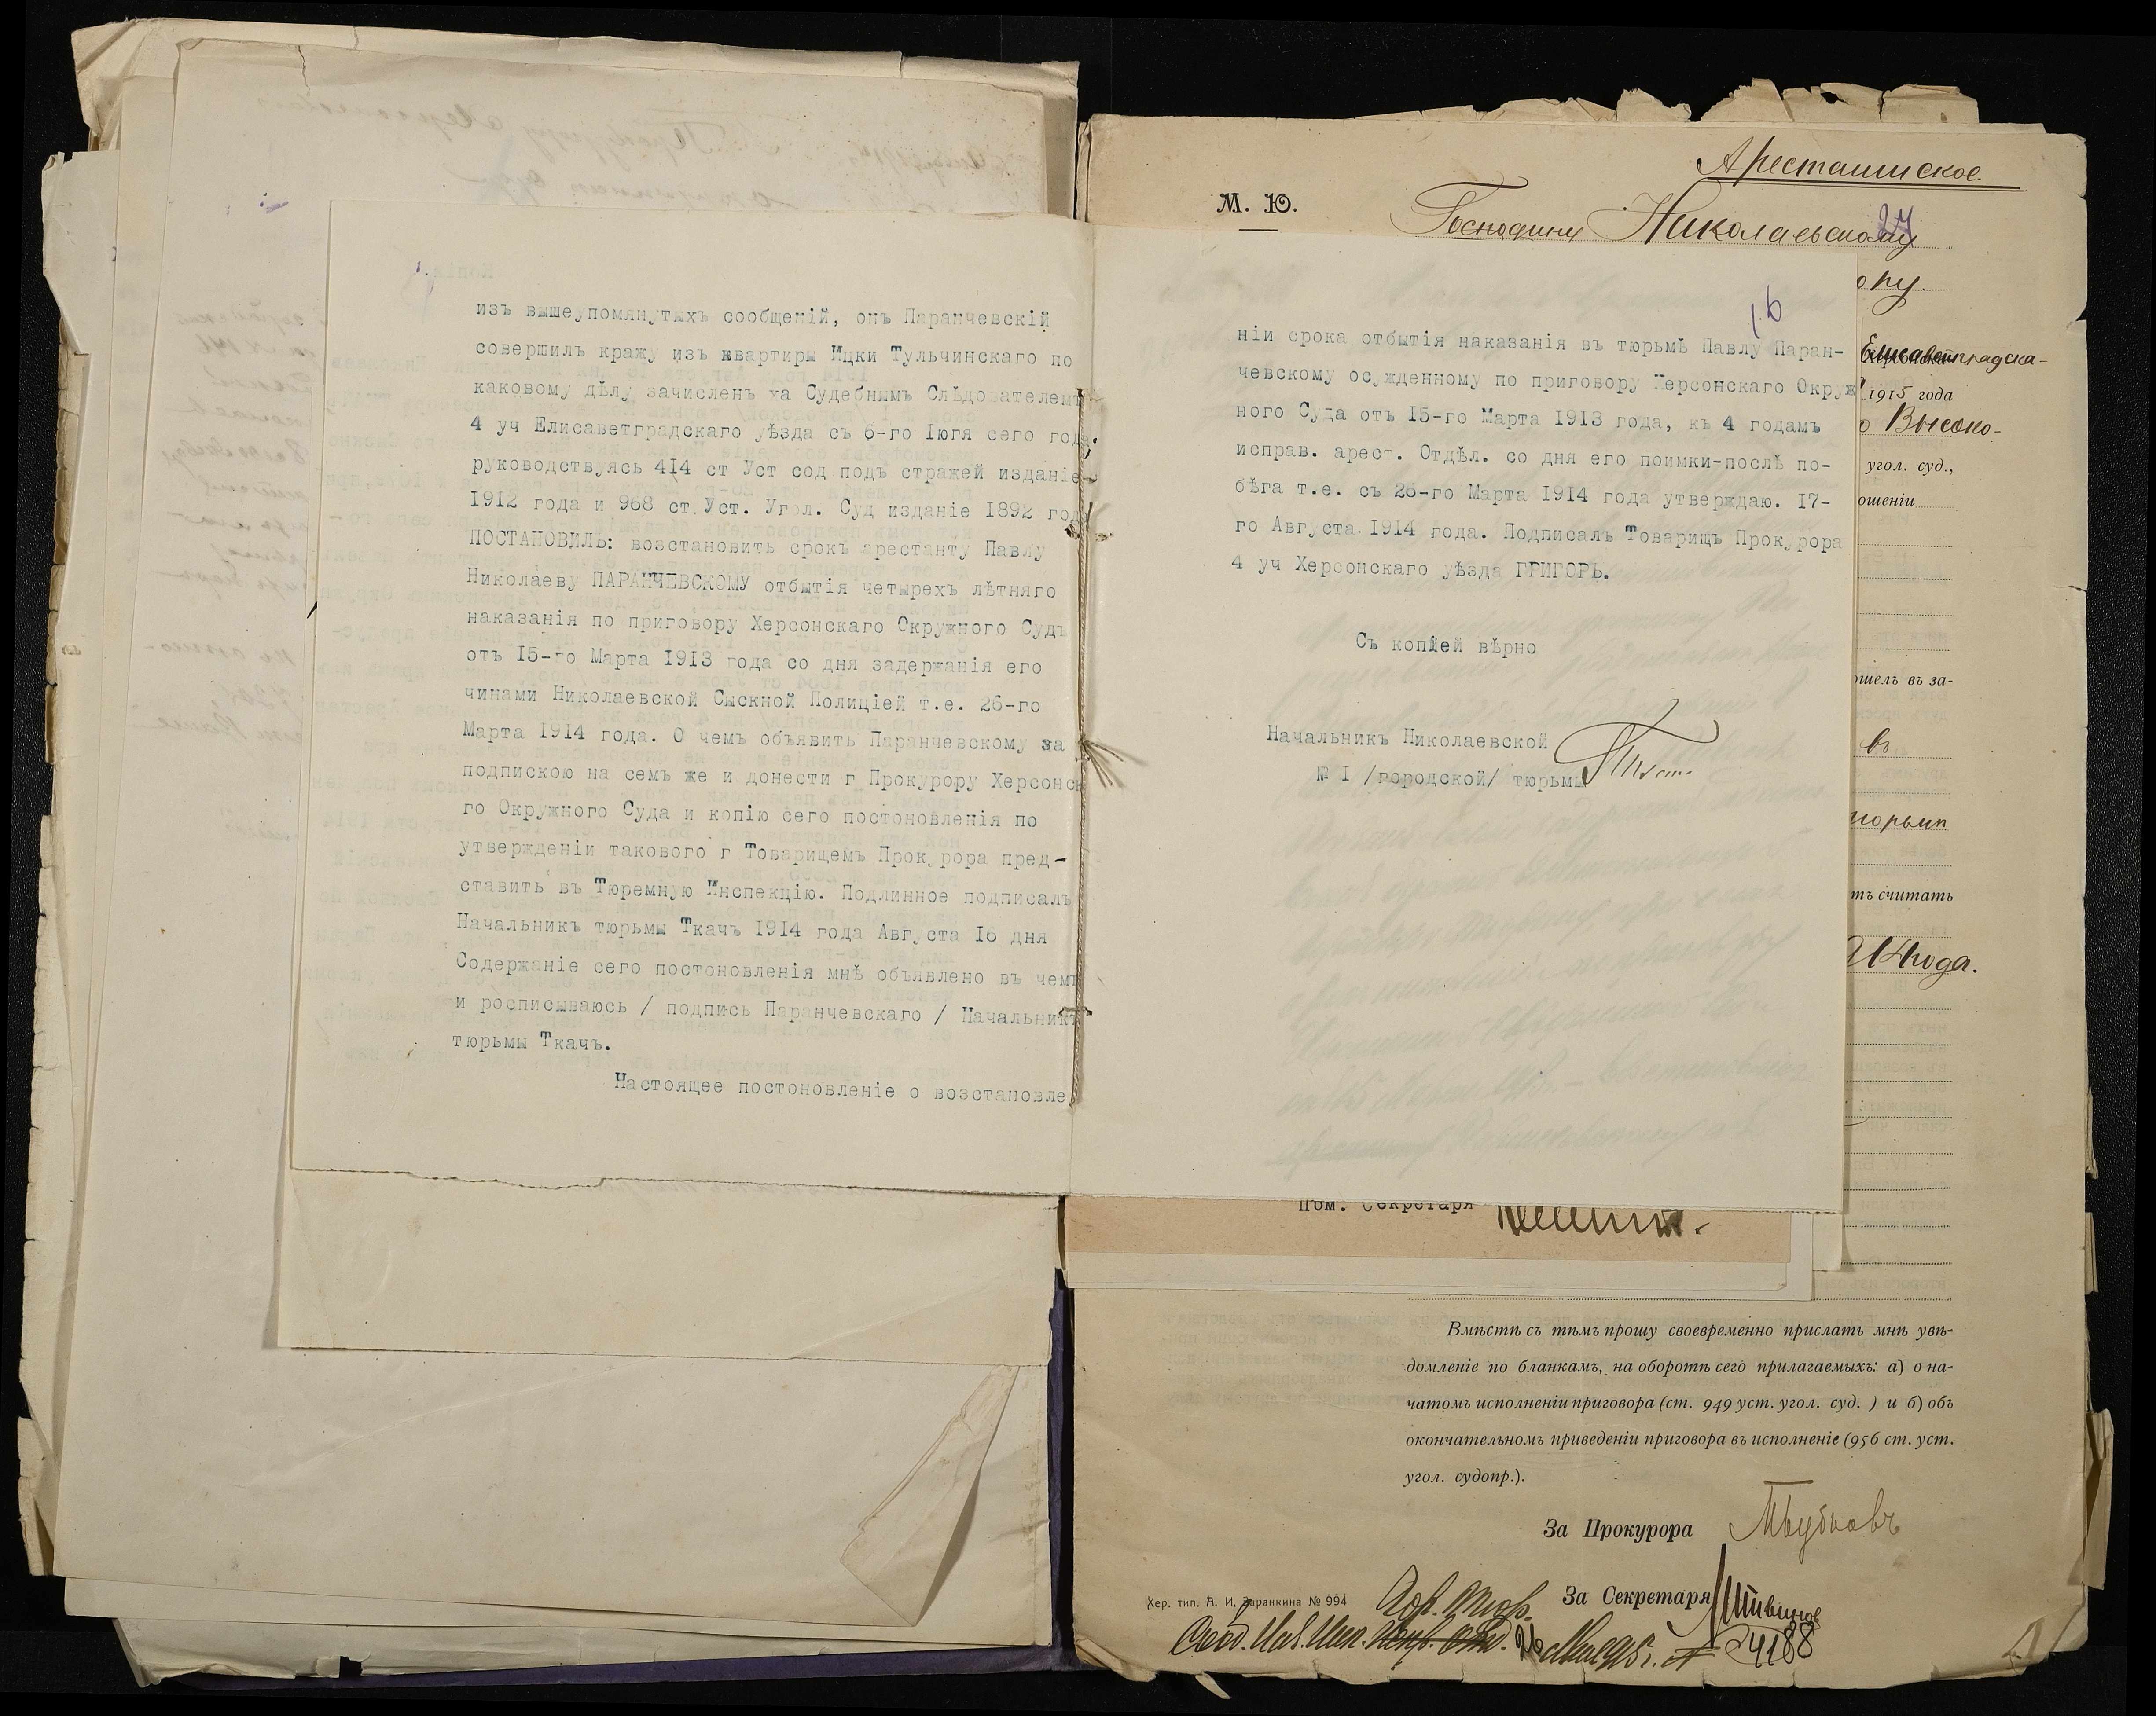 изъ вышеупомянутыхъ сообщеній, онъ Паранчевскій
совершилъ кражу изъ квартиры Ицки Тульчинскаго по
каковому дѣлу зачисленъ ха Судебнымъ Слѣдователемъ
4 уч Елисаветградскаго уѣзда съ 6-го Іюгя сего года.
руководствуясь 414 ст Уст сод подъ стражей изданіе
1912 года и 968 ст.Уст. Угол. Суд изданіе 1892 года
ПОСТАНОВИЛЪ: возстановить срокъ арестанту Павлу
Николаеву ПАРАНЧЕВСКОМУ отбытія четырехъ лѣтняго
наказанія по приговору Херсонскаго Окружного Судъ
отъ 15-го Марта 1913 года со дня задержанія его
чинами Николаевской Сыскной Полиціей т.е. 26-го
Марта 1914 года. О чемъ объявить Паранчевскому за
подпискою на семъ же и донести г Прокурору Херсонск
го Окружного Суда и копію сего постоновленія по
утвержденіи такового г Товарищемъ Прокурора пред-
ставить въ Тюремную Инспекцію. Подлинное подписалъ
Начальникъ тюрьмы Ткачъ 1914 года Августа 16 дня
Содержаніе сего постоновленія мнѣ объявлено въ чемъ
и росписываюсь / подпись Паранчевскаго / Начальникъ
тюрьмы Ткачъ.
Настоящее постоновленіе о возстановле
16
ніи срока отбытія наказанія въ тюрьмѣ Павлу Паран-
чевскому осужденному по приговору Херсонскаго Окруж
ного Суда отъ 15-го Марта 1913 года, къ 4 годамъ
исправ. арест. Отдѣл. со дня его поимки-послѣ по-
бѣга т.е. съ 26-го Марта 1914 года утверждаю. 17-
го Августа 1914 года. Подписалъ Товарищъ Прокурора
4 уч Херсонскаго уѣзда ГРИГОРЬ.
Съ копіей вѣрно
Начальникъ Николаевской
№ I /городской/ тюрьмы
Арестантское.
М. Ю.
Господину Николаевскому
27
ору.
Елисаветградска-
1915 года
о Высоко-
угол. суд.,
ошеніи
ошелъ въ за-
въ
тюрьмѣ
тъ считать
года.
Пом. Секретаря
Вмѣстѣ съ тѣмъ прошу своевременно прислать мнѣ увѣ-
домленіе по бланкамъ, на оборотѣ сего прилагаемыхъ: а) о на-
чатомъ исполненіи приговора (ст. 949 уст. угол. суд. ) и б) объ
окончательномъ приведеніи приговора въ исполненіе (956 ст. уст.
угол. судопр.).
За Прокурора
За Секретаря
Хер. тип. А. И. Заранкина № 994
4188